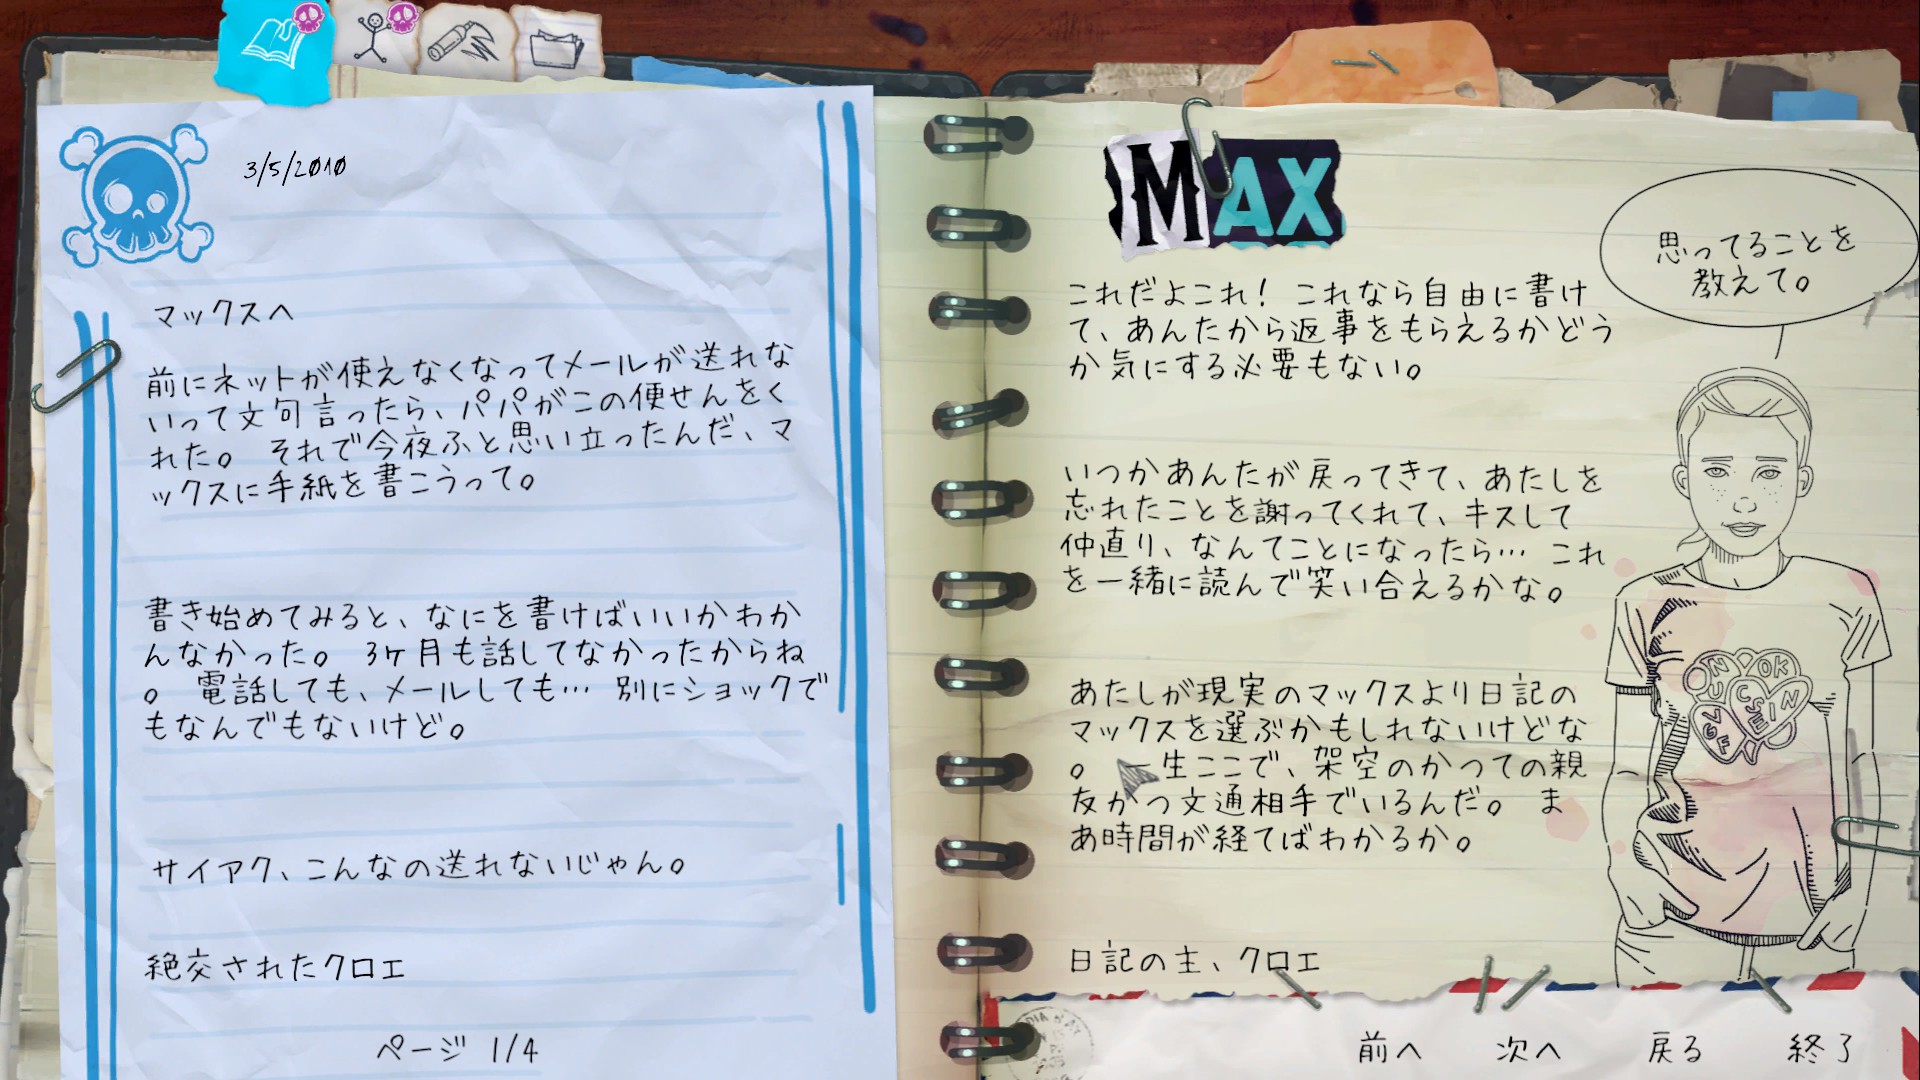 3/5/2010
マックスへ
前にネットが使えなくなってメールが送れな
いって文句言ったら、パパがこの便せんをく
れた。 それで今夜ふと思い立ったんだ、マ
ックスに手紙を書こうって。
書き始めてみると、なにを書けばいいかわか
んなかった。 3ケ月も話してなかったからね
。 電話しても、メールしても… 別にショックで
もなんでもないけど。
サイアク、こんなの送れないじゃん。
絶交されたクロエ
ページ 1/4
MAX
これだよこれ！ これなら自由に書け
て、あんたから返事をもらえるかどう
か気にする必要もない。
いつかあんたが戻ってきて、あたしを
忘れたことを謝ってくれて、キスして
仲直り、なんてことになったら… これ
を一緒に読んで笑い合えるかな。
あたしが現実のマックスより日記の
マックスを選ぶかもしれないけどな
。 一生ここで、架空のかつての親
友かつ文通相手でいるんだ。 ま
あ時間が経てばわかるか。
日記の主、クロエ
思ってることを
教えて。
前へ 次へ 戻る 終了